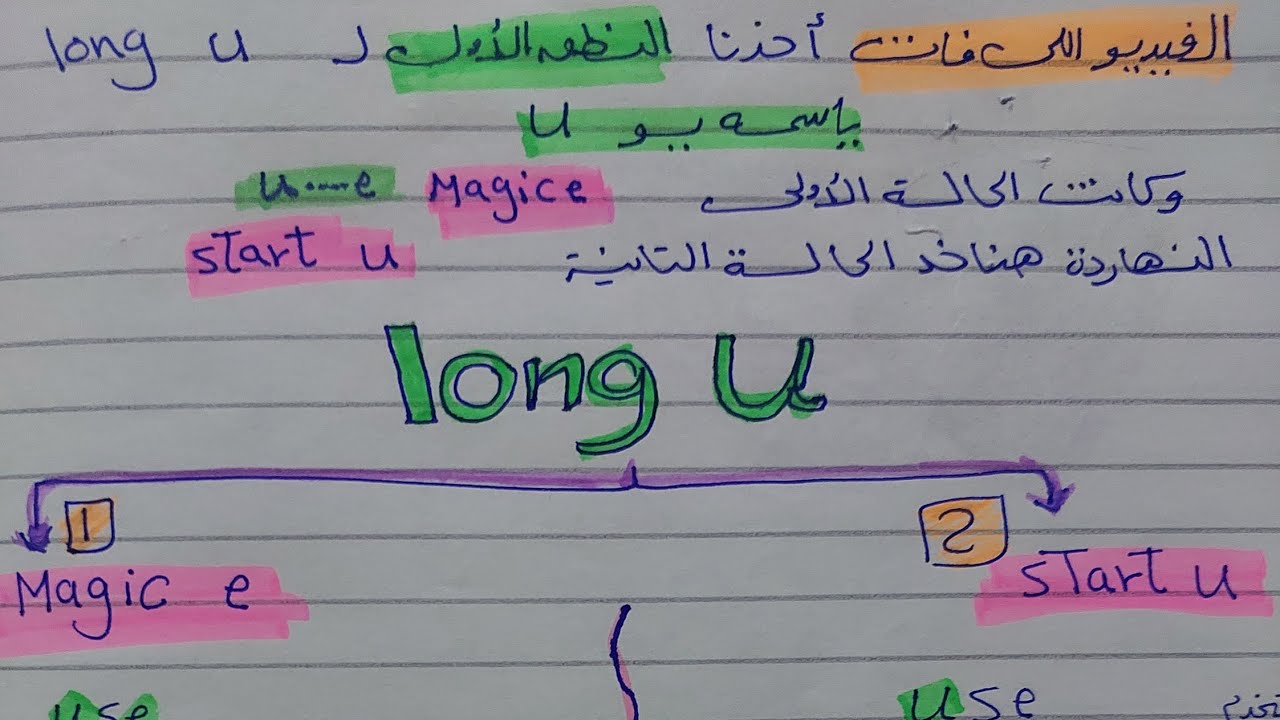 الفيديو اللى فات أخذنا النطق الأول ل long u
بإسمه يو u
وكانت الحالة الأولى Magic e u....e
النهاردة هناخد الحالة التانية start u
long u
1 2
Magic e start u
use use